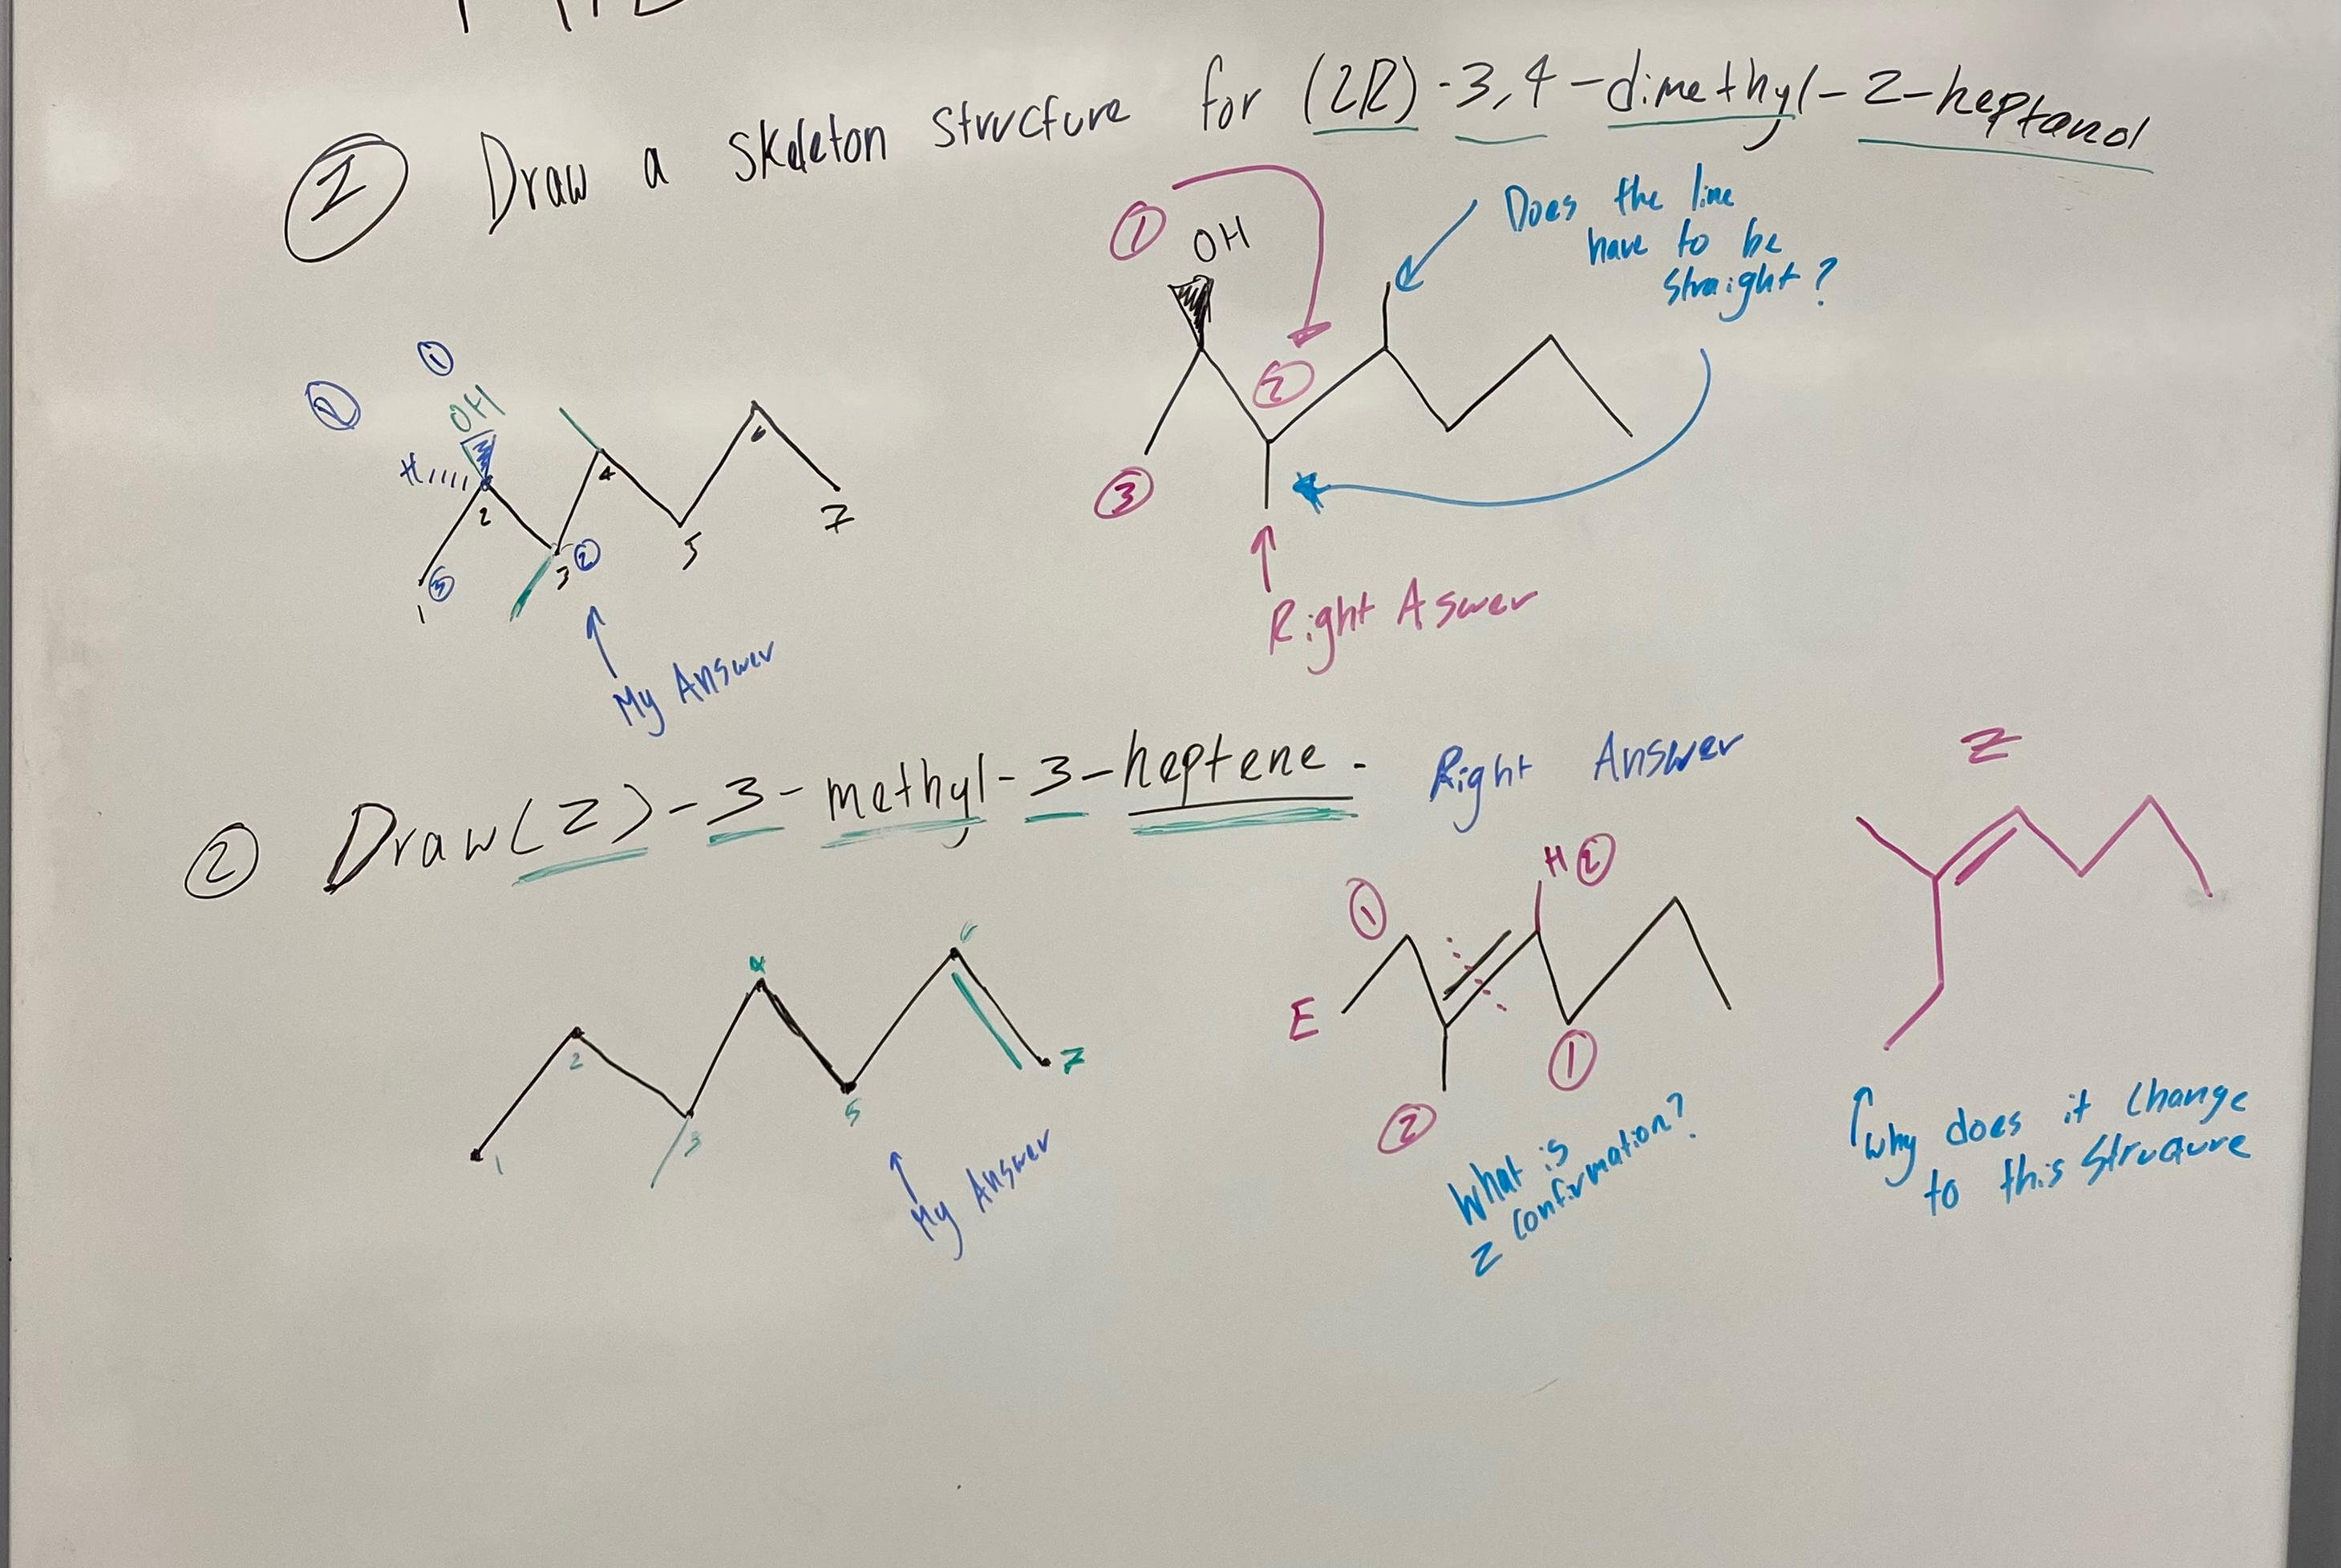 ① Draw a skeleton structure for (2R)-3,4-dimethyl-2-heptanol
① OH
Does the line
have to be
straight?
②
③
Right Aswer
②
①
OH
H
2
4
6
1
③
3
②
5
7
My Answer
② Draw (Z)-3-methyl-3-heptene.
Right Answer
1
2
3
4
5
6
7
My Answer
①
H ②
E
①
②
What is
Z confirmation?
Z
Why does it change
to this structure